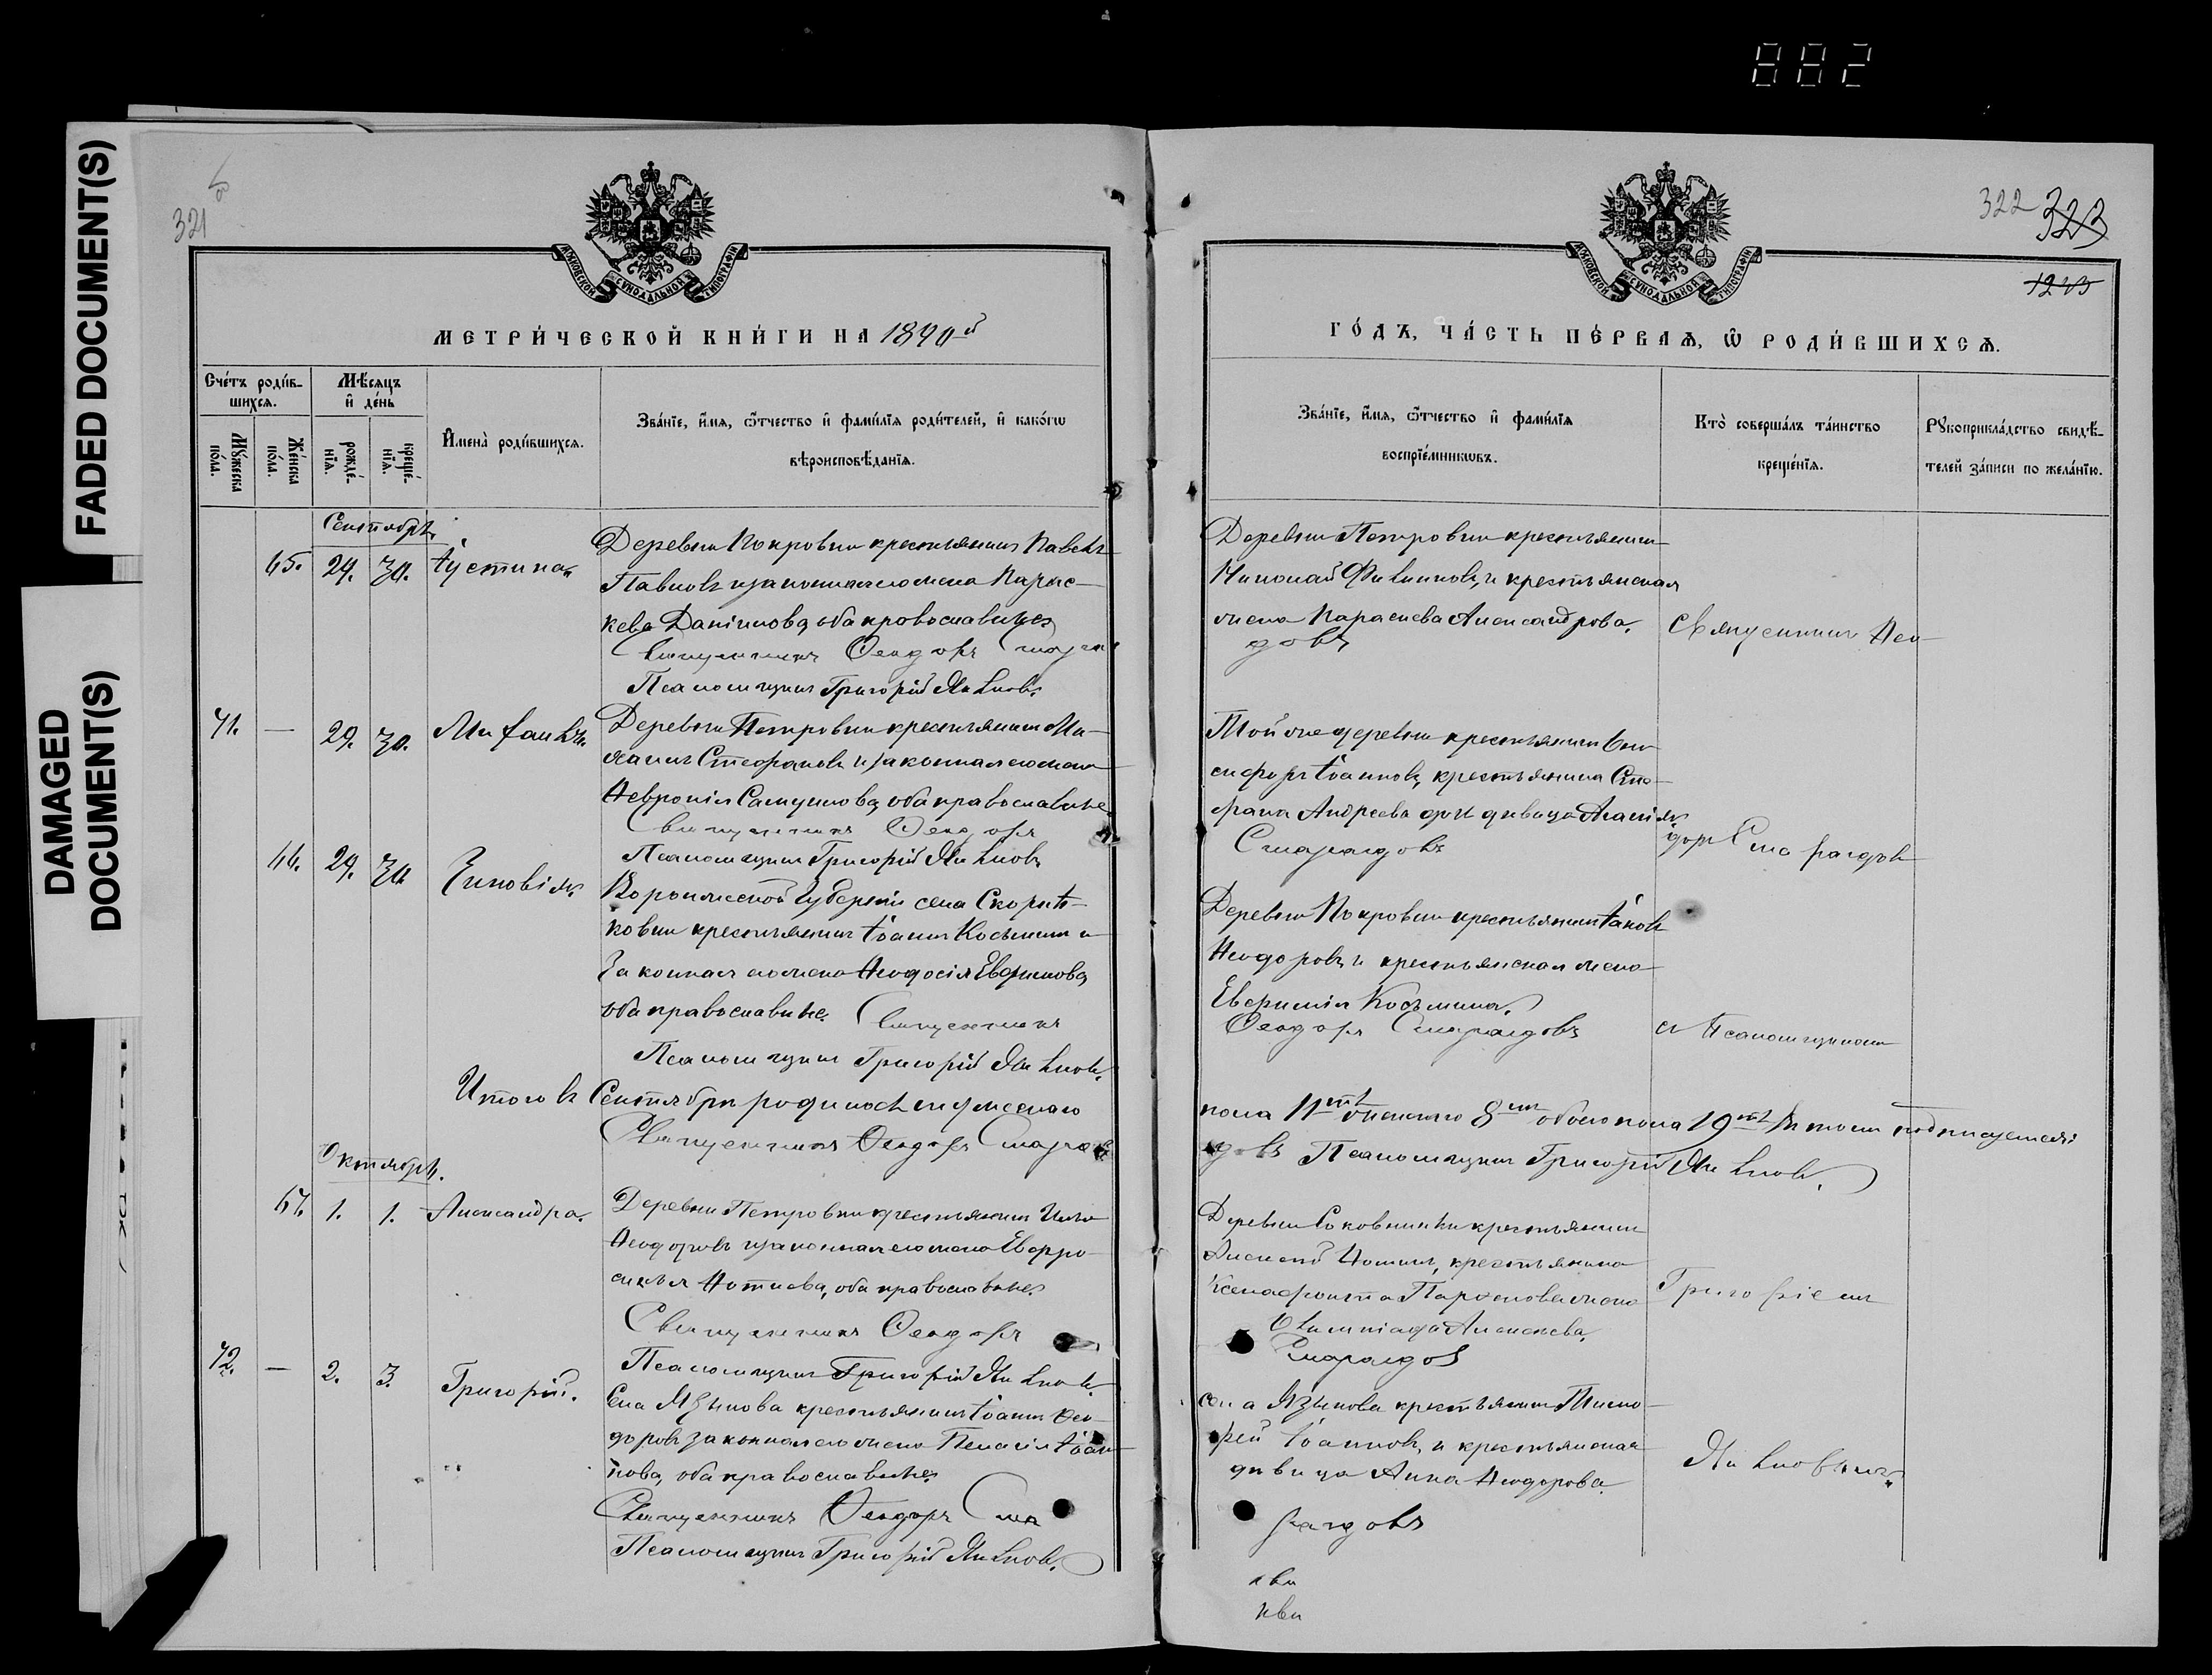 FADED DOCUMENT(S)
DAMAGED
DOCUMENT(S)
882
321
МОСКОВСКОЙ СУНОДАЛЬНОЙ ТИПОГРАФІИ
МЕТРИ́ЧЕСКОЙ КНИ́ГИ НА 1890й
Сче́тъ роди́в-
шихсѧ.
Мѣ́сѧцъ
и҆ де́нь
Мꙋ́жеска
по́ла.
Же́нска
по́ла.
рожде́-
нїѧ.
креще́-
нїѧ.
И҆мена̀ роди́вшихсѧ.
Зва́нїе, и҆́мѧ, ѻ҆́тчество и҆ фами́лїѧ роди́телей, и҆ како́гѡ
вѣроисповѣ́данїѧ.
Сентябрь
65. 29. 30. Іустина
Деревни Покровки крестьянинъ Павелъ
Павловъ и законная его жена Парас-
кева Даніилова, оба православные
Священникъ Ѳеодоръ Смараг
Псаломщикъ Григорій
71. — 29. 30.
Деревни Петровки крестьянинъ Ми-
хаилъ Стефановъ и законная его жена
Февронія Самуилова, оба православные
Священникъ Ѳеодоръ
Псаломщикъ Григорій
66. 29. 30. Зиновія.
Воронежской губерніи села
крестьянинъ Іоаннъ Косьминъ и
законная его жена Ѳеодосія Евфимова,
оба православные. Священникъ
Псаломщикъ Григорій
Итого въ Сентябрѣ родилось мужескаго
Священникъ Ѳеодоръ Смараг
Октябрь.
67. 1. 1. Александра.
Деревни Петровки крестьянинъ Илія
Ѳеодоровъ и законная его жена Евфро-
синья Фотиева, оба православные.
Священникъ Ѳеодоръ
Псаломщикъ Григорій
72. — 2. 3. Григорій.
Села Языкова крестьянинъ Іоаннъ Ѳео-
доровъ законная его жена Пелагія Іоан-
нова, оба православные
Священникъ Ѳеодоръ Сма
Псаломщикъ Григорій
322 323
МОСКОВСКОЙ СУНОДАЛЬНОЙ ТИПОГРАФІИ
ГО́ДЪ, ЧА́СТЬ ПЕ́РВАѦ, Ѽ РОДИ́ВШИХСѦ.
Зва́нїе, и҆́мѧ, ѻ҆́тчество и҆ фами́лїѧ
воспрїе́мникѡвъ.
Кто̀ соверша́лъ та́инство
креще́нїѧ.
Рꙋкоприкла́дство свидѣ́-
телей за́писи по жела́нїю.
Деревни Петровки крестьянинъ
Николай Филиповъ, и крестьянская
жена Параскева Александрова. Священникъ Ѳео-
довъ
Той же деревни крестьянинъ Они-
сифоръ Іоанновъ, крестьянина Сте-
фана Андреева дочь дѣвица
Смарагдовъ доръ Смарагдовъ
Деревни Покровки крестьянинъ Іаковъ
Ѳеодоровъ, и крестьянская жена
Евфимія Косьмина.
Ѳеодоръ Смарагдовъ съ Псаломщикомъ
пола 11ть женскаго 8мь обоего пола 19ть въ томъ подписуемся:
довъ Псаломщикъ Григорій
Деревни крестьянинъ
Алексій крестьянина
Ксенофонта жена Григоріемъ
Олимпіада Алексеева.
Смарагдов
села Языкова крестьянинъ Тимо-
фей Іоанновъ, и крестьянская
дѣвица Анна Ѳеодорова.
рагдовъ